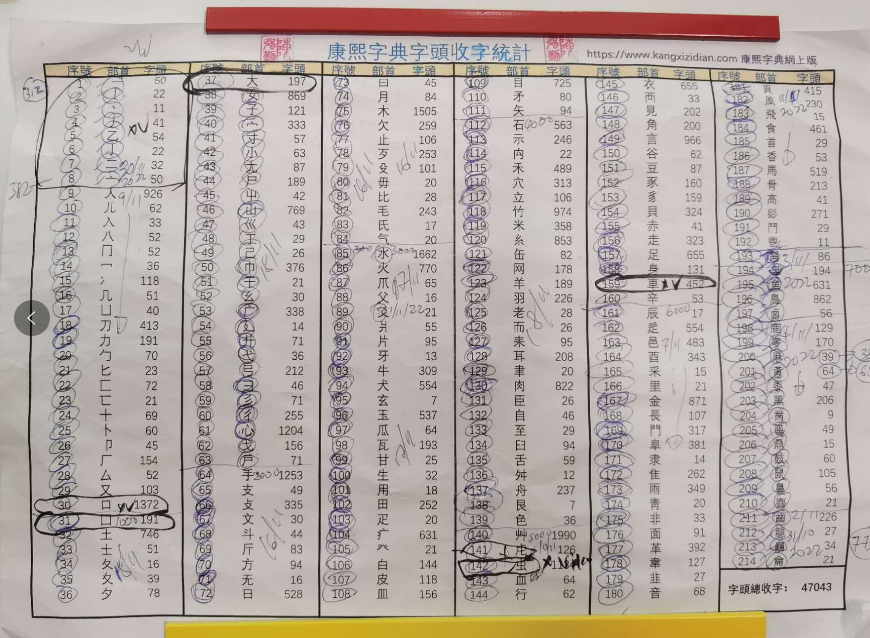 康熙字典字頭收字統計
https://www.kangxizidian.com 康熙字典網上版
序號 部首 字頭
1 一 50
2 丨 22
3 丶 11
4 丿 41
5 乙 54
6 亅 22
7 二 32
8 亠 50
9 人 926
10 儿 62
11 入 33
12 八 52
13 冂 52
14 冖 36
15 冫 118
16 几 51
17 凵 40
18 刀 413
19 力 191
20 勹 70
21 匕 23
22 匚 72
23 匸 21
24 十 69
25 卜 60
26 卩 45
27 厂 154
28 厶 52
29 又 103
30 口 1372
31 囗 191
32 土 746
33 士 51
34 夂 16
35 夊 39
36 夕 78
序號 部首 字頭
37 大 197
38 女 869
39 子 121
40 宀 333
41 寸 57
42 小 63
43 尢 87
44 尸 189
45 屮 42
46 山 769
47 巛 43
48 工 29
49 己 26
50 巾 376
51 干 21
52 幺 30
53 广 338
54 廴 14
55 廾 71
56 弋 36
57 弓 212
58 彐 46
59 彡 71
60 彳 255
61 心 1204
62 戈 156
63 戶 71
64 手 1253
65 支 49
66 攴 335
67 文 30
68 斗 44
69 斤 83
70 方 94
71 无 16
72 日 528
序號 部首 字頭
73 曰 45
74 月 84
75 木 1505
76 欠 259
77 止 106
78 歹 253
79 殳 101
80 毋 20
81 比 28
82 毛 243
83 氏 17
84 气 20
85 水 1662
86 火 770
87 爪 65
88 父 16
89 爻 21
90 爿 55
91 片 95
92 牙 13
93 牛 309
94 犬 554
95 玄 7
96 玉 537
97 瓜 64
98 瓦 193
99 甘 25
100 生 32
101 用 18
102 田 252
103 疋 20
104 疒 631
105 癶 21
106 白 144
107 皮 118
108 皿 156
序號 部首 字頭
109 目 725
110 矛 80
111 矢 94
112 石 563
113 示 246
114 禸 22
115 禾 489
116 穴 313
117 立 106
118 竹 974
119 米 358
120 糸 853
121 缶 82
122 网 178
123 羊 189
124 羽 226
125 老 28
126 而 26
127 耒 95
128 耳 208
129 聿 20
130 肉 822
131 臣 26
132 自 46
133 至 29
134 臼 94
135 舌 59
136 舛 12
137 舟 237
138 艮 7
139 色 36
140 艸 1990
141 虍 126
142 虫
143 血 64
144 行 62
序號 部首 字頭
145 衣 655
146 襾 33
147 見 202
148 角 200
149 言 966
150 谷 62
151 豆 87
152 豕 160
153 豸 159
154 貝 324
155 赤 41
156 走 323
157 足 655
158 身 131
159 車 452
160 辛 53
161 辰 17
162 辵 554
163 邑 483
164 酉 343
165 釆 15
166 里 21
167 金 871
168 長 107
169 門 317
170 阜 381
171 隶 14
172 隹 262
173 雨 349
174 青 20
175 非 33
176 面 91
177 革 392
178 韋 127
179 韭 27
180 音 68
序號 部首 字頭
181 頁 415
182 風 230
183 飛 15
184 食 461
185 首 29
186 香 53
187 馬 519
188 骨 213
189 高 41
190 髟 271
191 鬥 29
192 鬯 11
193 鬲 86
194 鬼 194
195 魚 631
196 鳥 862
197 鹵 56
198 鹿 129
199 麥 170
200 麻 39
201 黃 64
202 黍 47
203 黑 206
204 黹 9
205 黽 49
206 鼎 15
207 鼓 60
208 鼠 105
209 鼻 56
210 齊 21
211 齒 226
212 龍 27
213 龜 34
214 龠 21
字頭總收字： 47043